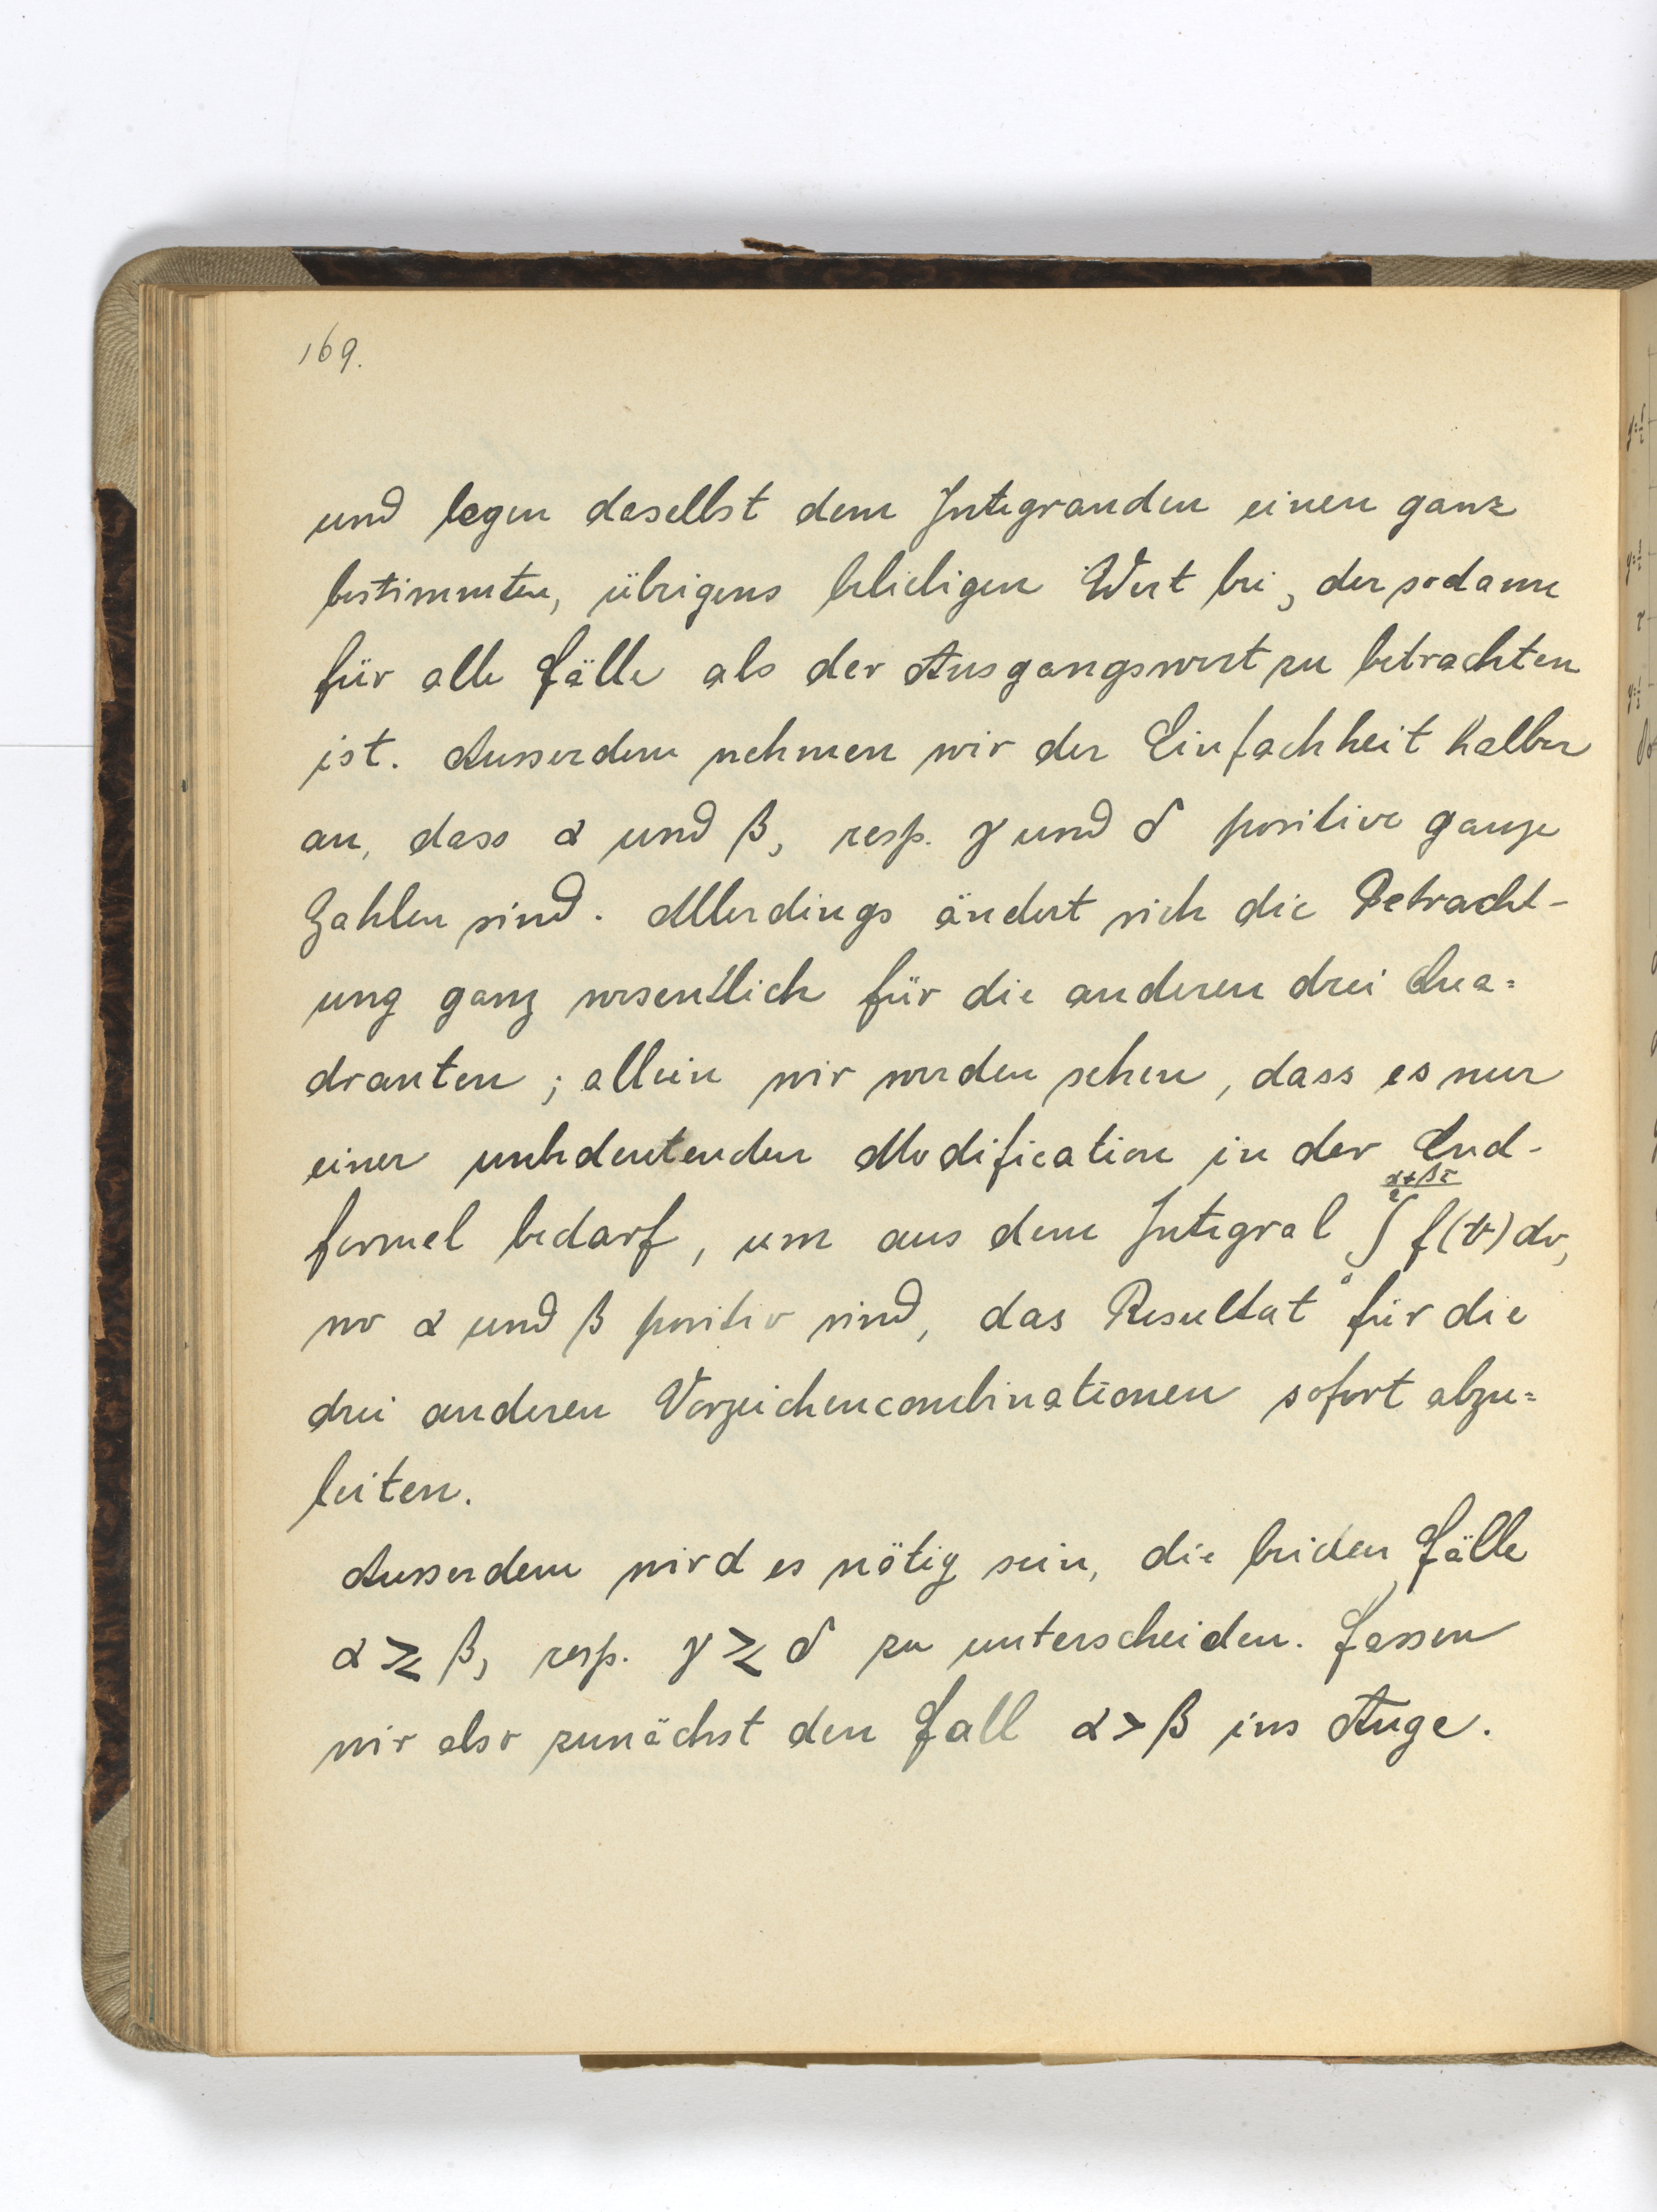 169.
und legen daselbst dem Integranden einen ganz
bestimmten, übrigens beliebigen Wert bei, der sodann
für alle Fälle als der Ausgangswert zu betrachten
ist. Ausserdem nehmen wir der Einfachheit halber
an, dass α und β, resp. γ und δ positive ganze
Zahlen sind. Allerdings ändert sich die Betracht-
ung ganz wesentlich für die anderen drei Qua=
dranten; allein wir werden sehen, dass es nur
einer unbedeutenden Modification in der End-
formel bedarf, um aus dem Integral ∫₀^{(α+βτ)/2} f(v) dv,
wo α und β positiv sind, das Resultat für die
drei anderen Vorzeichencombinationen sofort abzu=
leiten.
Ausserdem wird es nötig sein, die beiden Fälle
α ≷ β, resp. γ ≷ δ zu unterscheiden. Fassen
wir also zunächst den Fall α > β ins Auge.